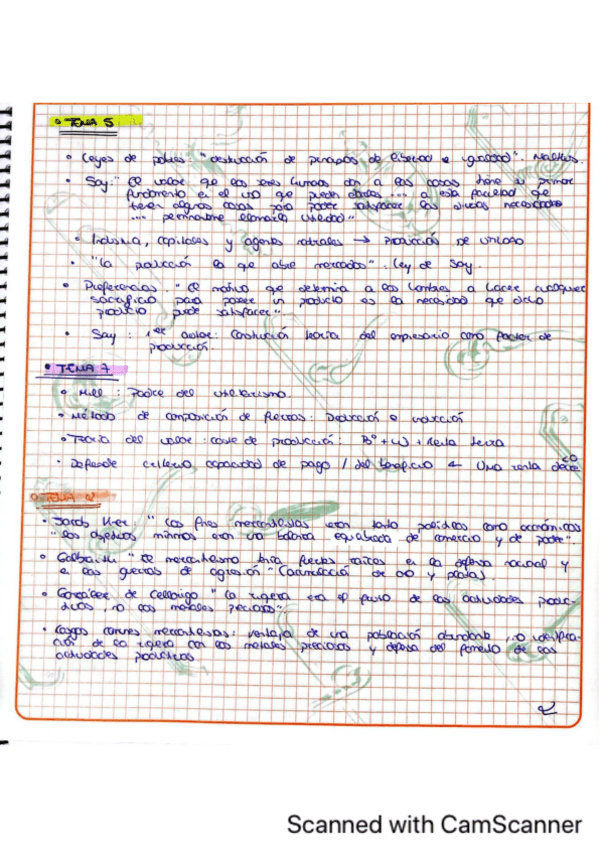 • TEMA 5
• Leyes de pobres: "destrucción de principios de libertad e igualdad". Malthus.
• Say: "El valor que los seres humanos dan a las cosas tiene su primer
fundamento en el uso que pueden ... a esta facultad que
tienen algunas cosas para poder satisfacer las necesidades
... permítanme llamarla utilidad"
• Industria, capitales y agentes naturales → PRODUCCIÓN DE UTILIDAD
• "La producción es la que abre mercados": Ley de Say.
• Preferencias: "El motivo que determina a los hombres a hacer cualquier
sacrificio para poseer un producto es la necesidad que dicho
producto puede satisfacer".
• Say: 1er autor: Construcción teoría del empresario como factor de
producción.
• TEMA 7
• Mill: Padre del utilitarismo.
• Método de composición de fuerzas: Deducción e inducción
• Teoría del valor: coste de producción: Bº + W + Renta tierra
• Defiende criterio capacidad de pago / del beneficio
• TEMA 2
• Jacob Viner "Los fines mercantilistas eran tanto políticos como económicos
"los objetivos mínimos eran una balanza equilibrada de comercio y de poder".
• Galbraith: "El mercantilismo tenía fuertes raíces en la defensa nacional y
en las guerras de agresión" (acumulación de oro y plata).
• González de Cellorigo "la riqueza era el fruto de las actividades produc-
tivas, no los metales preciosos"
• Rasgos comunes mercantilistas: ventaja de una población abundante, no identifica-
ción de la riqueza con los metales preciosos y defensa del fomento de las
actividades productivas
2
Scanned with CamScanner